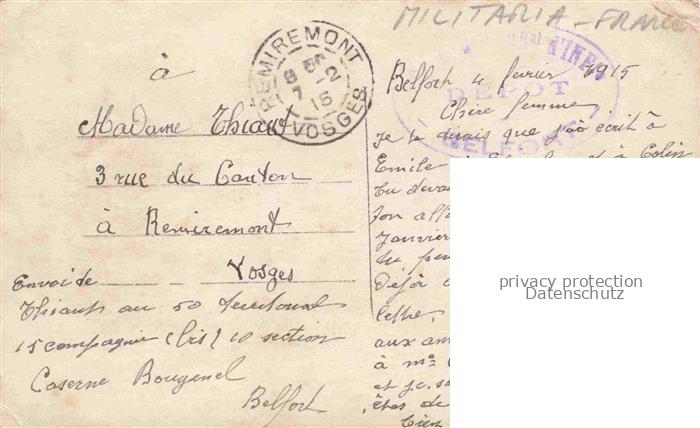 MILITARIA - FRANCE
à
REMIREMONT
8 50
7 -2
15
VOSGES
Madame Thiaut
3 rue du Canton
à Remiremont
Vosges
Envoi de
Thiaut au 50 territorial
15 compagnie (bis) 10 section
Caserne Bougenel
Belfort
d'INF
DEPOT
BELFORT
Belfort 4 fevrier 1915
Chère femme
je te dirais que j'ai écrit à
Emile à et à Colin
tu
ton
janvier
tu
Déjà
lettre,
aux
à
et je
êtes de
bien
privacy protection
Datenschutz